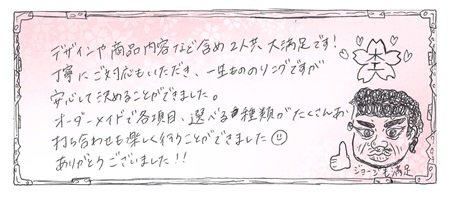 デザインや商品内容など含め2人共、大満足です!
丁寧にご対応もいただき、一生もののリングですが
安心して決めることができました。
オーダーメイドで各項目、選べる種類がたくさんあ
打ち合わせも楽しく行うことができました
ありがとうございました!!
ジョージも満足